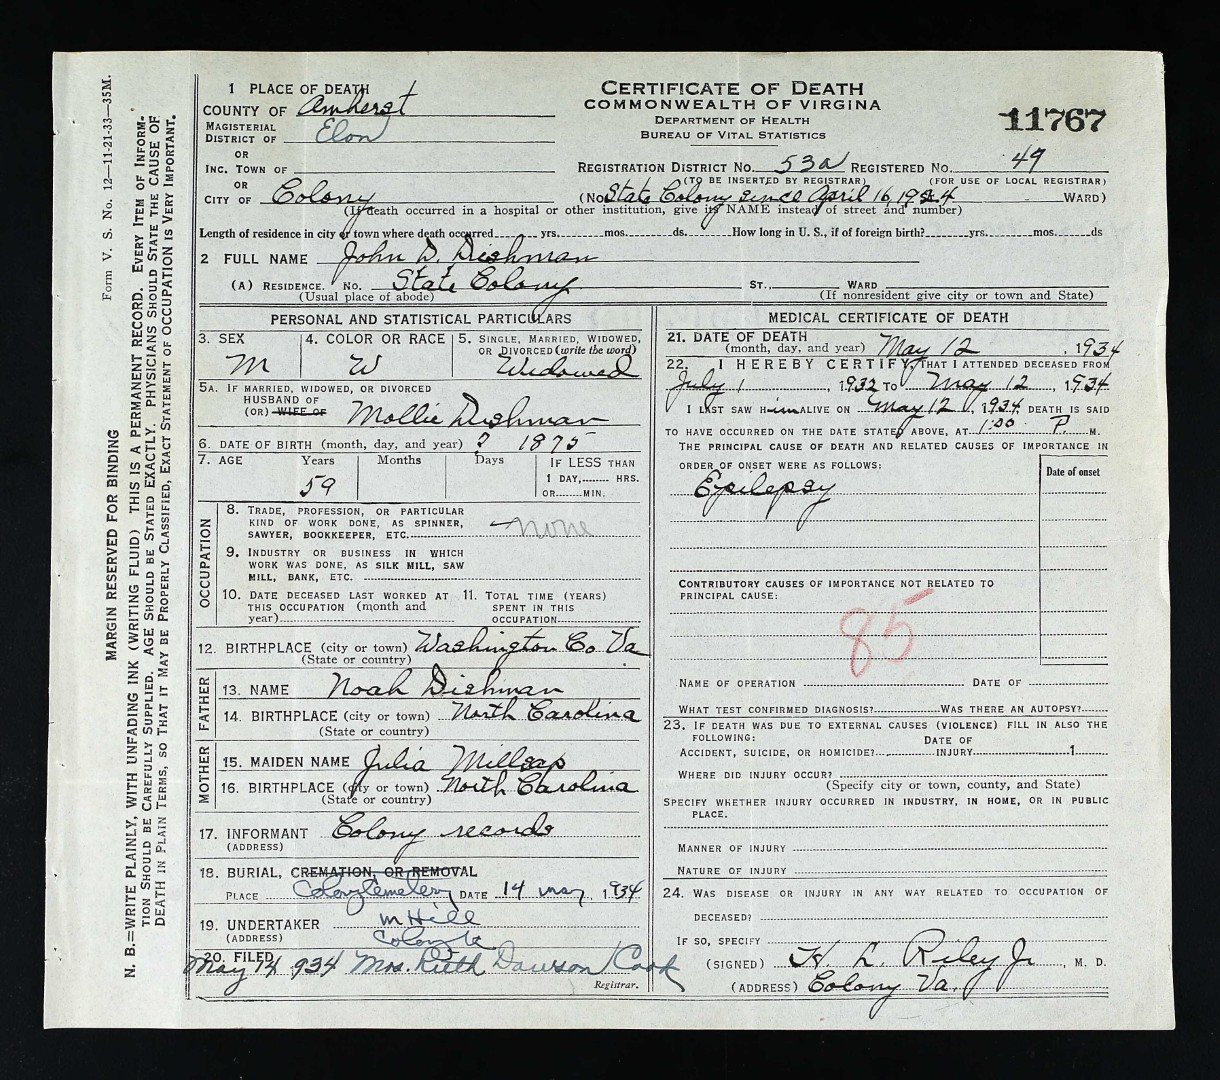 Form V. S. No. 12—11-21-33—35M.
MARGIN RESERVED FOR BINDING
N. B.—WRITE PLAINLY, WITH UNFADING INK (WRITING FLUID) THIS IS A PERMANENT RECORD. EVERY ITEM OF INFORMATION SHOULD BE CAREFULLY SUPPLIED. AGE SHOULD BE STATED EXACTLY. PHYSICIANS SHOULD STATE THE CAUSE OF DEATH IN PLAIN TERMS, SO THAT IT MAY BE PROPERLY CLASSIFIED, EXACT STATEMENT OF OCCUPATION IS VERY IMPORTANT.
CERTIFICATE OF DEATH
COMMONWEALTH OF VIRGINA
DEPARTMENT OF HEALTH
BUREAU OF VITAL STATISTICS
11767
1 PLACE OF DEATH
COUNTY OF Amherst
MAGISTERIAL DISTRICT OF Elon
OR
INC. TOWN OF
OR
CITY OF Colony
REGISTRATION DISTRICT NO. 53a REGISTERED NO. 49
(TO BE INSERTED BY REGISTRAR) (FOR USE OF LOCAL REGISTRAR)
(No State Colony since April 16, 1924 WARD)
(If death occurred in a hospital or other institution, give its NAME instead of street and number)
Length of residence in city or town where death occurred yrs. mos. ds. How long in U. S., if of foreign birth? yrs. mos. ds
2 FULL NAME John D. Dishman
(A) RESIDENCE. NO. State Colony ST., WARD
(Usual place of abode) (If nonresident give city or town and State)
PERSONAL AND STATISTICAL PARTICULARS
3. SEX M
4. COLOR OR RACE W
5. SINGLE, MARRIED, WIDOWED, OR DIVORCED (write the word) Widowed
5A. IF MARRIED, WIDOWED, OR DIVORCED
HUSBAND OF
(OR) WIFE OF Mollie Dishman
6. DATE OF BIRTH (month, day, and year) ? 1875
7. AGE Years Months Days IF LESS THAN
1 DAY, HRS.
OR MIN.
59
OCCUPATION
8. TRADE, PROFESSION, OR PARTICULAR
KIND OF WORK DONE, AS SPINNER,
SAWYER, BOOKKEEPER, ETC. none
9. INDUSTRY OR BUSINESS IN WHICH
WORK WAS DONE, AS SILK MILL, SAW
MILL, BANK, ETC.
10. DATE DECEASED LAST WORKED AT
THIS OCCUPATION (month and
year)
11. TOTAL TIME (YEARS)
SPENT IN THIS
OCCUPATION
12. BIRTHPLACE (city or town) Washington Co Va
(State or country)
FATHER
13. NAME Noah Dishman
14. BIRTHPLACE (city or town) North Carolina
(State or country)
MOTHER
15. MAIDEN NAME Julia Millsap
16. BIRTHPLACE (city or town) North Carolina
(State or country)
17. INFORMANT Colony records
(ADDRESS)
18. BURIAL, CREMATION, OR REMOVAL
PLACE Colony Cemetery DATE 14 May, 1934
19. UNDERTAKER M Hill
(ADDRESS) Colony Va
20. FILED
May 14 934 Mrs. Ruth Dawson Cook
Registrar.
MEDICAL CERTIFICATE OF DEATH
21. DATE OF DEATH
(month, day, and year) May 12, 1934
22. I HEREBY CERTIFY, THAT I ATTENDED DECEASED FROM
July 1 1932 TO May 12, 1934
I LAST SAW HIM ALIVE ON May 12, 1934. DEATH IS SAID
TO HAVE OCCURRED ON THE DATE STATED ABOVE, AT 1:00 P. M.
THE PRINCIPAL CAUSE OF DEATH AND RELATED CAUSES OF IMPORTANCE IN
ORDER OF ONSET WERE AS FOLLOWS:
Date of onset
Epilepsy
CONTRIBUTORY CAUSES OF IMPORTANCE NOT RELATED TO
PRINCIPAL CAUSE:
85
NAME OF OPERATION DATE OF
WHAT TEST CONFIRMED DIAGNOSIS? WAS THERE AN AUTOPSY?
23. IF DEATH WAS DUE TO EXTERNAL CAUSES (VIOLENCE) FILL IN ALSO THE
FOLLOWING:
DATE OF
ACCIDENT, SUICIDE, OR HOMICIDE? INJURY 1
WHERE DID INJURY OCCUR?
(Specify city or town, county, and State)
SPECIFY WHETHER INJURY OCCURRED IN INDUSTRY, IN HOME, OR IN PUBLIC
PLACE.
MANNER OF INJURY
NATURE OF INJURY
24. WAS DISEASE OR INJURY IN ANY WAY RELATED TO OCCUPATION OF
DECEASED?
IF SO, SPECIFY
(SIGNED) H. L. Riley Jr, M. D.
(ADDRESS) Colony Va.